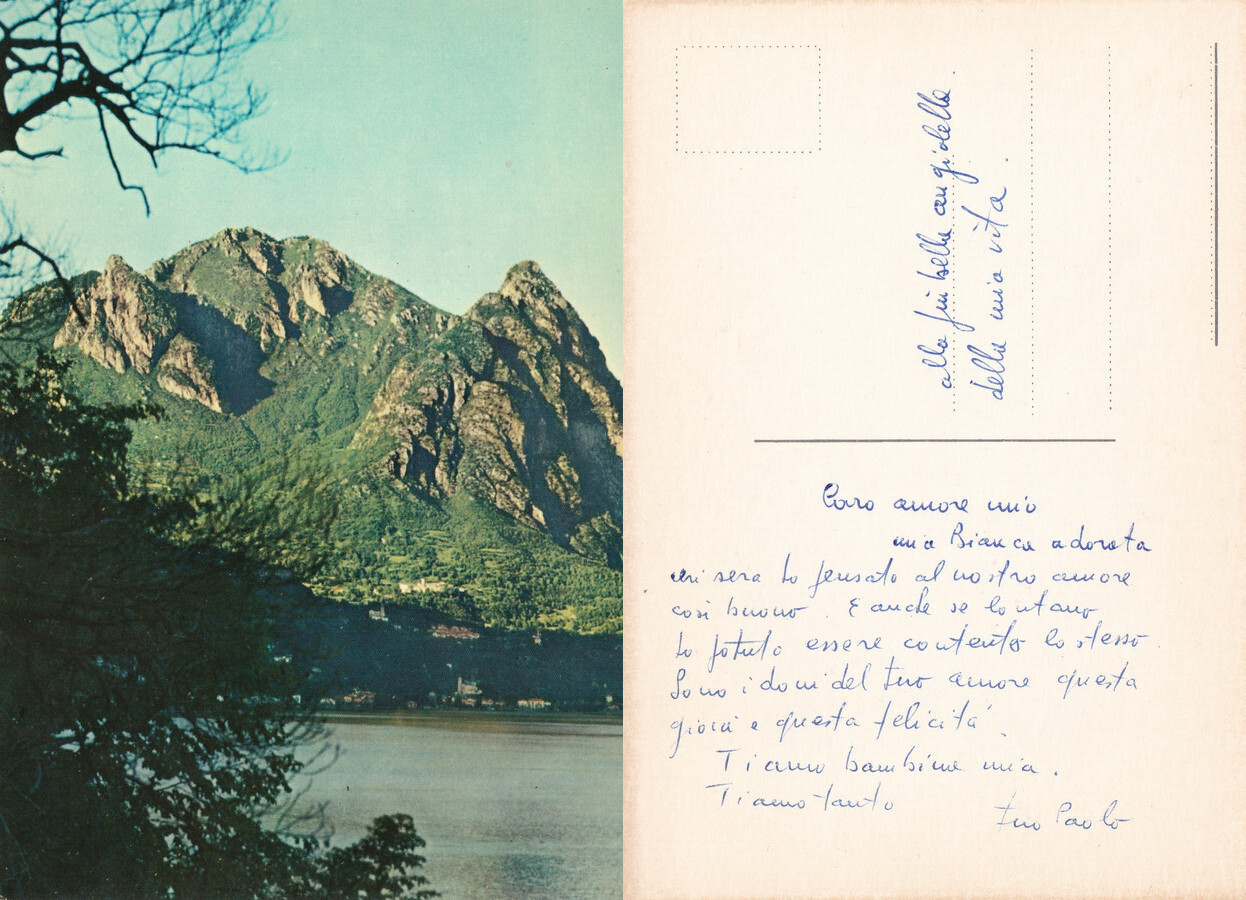 alla più bella angiolella.
della mia vita.
Caro amore mio
mia Bianca adorata
ieri sera ho pensato al nostro amore
così buono. E anche se lontano
ho potuto essere contento lo stesso.
Sono i doni del tuo amore questa
gioia e questa felicità.
Ti amo bambina mia.
Ti amo tanto
tuo Paolo